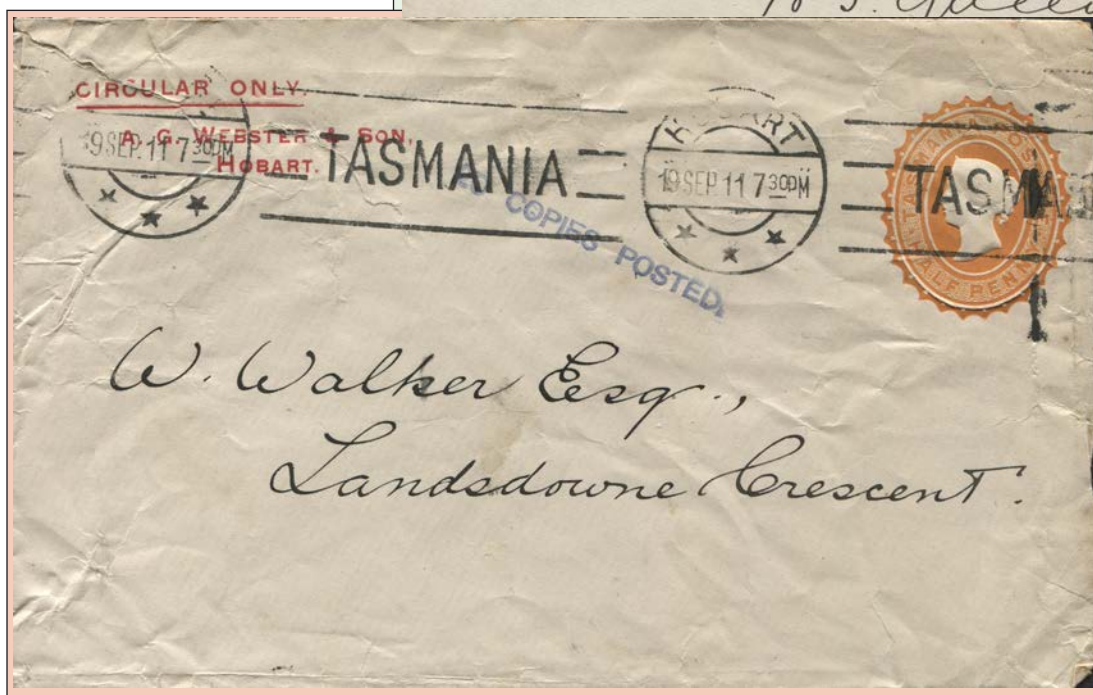 CIRCULAR ONLY.
A. G. WEBSTER & SON,
HOBART.
19 SEP. 11 7 30PM
TASMANIA
HOBART
19 SEP 11 7 30PM
TASMA
TASMANIA POS
HALF PENN
COPIES POSTED.
W. Walker Esq.,
Landsdowne Crescent.